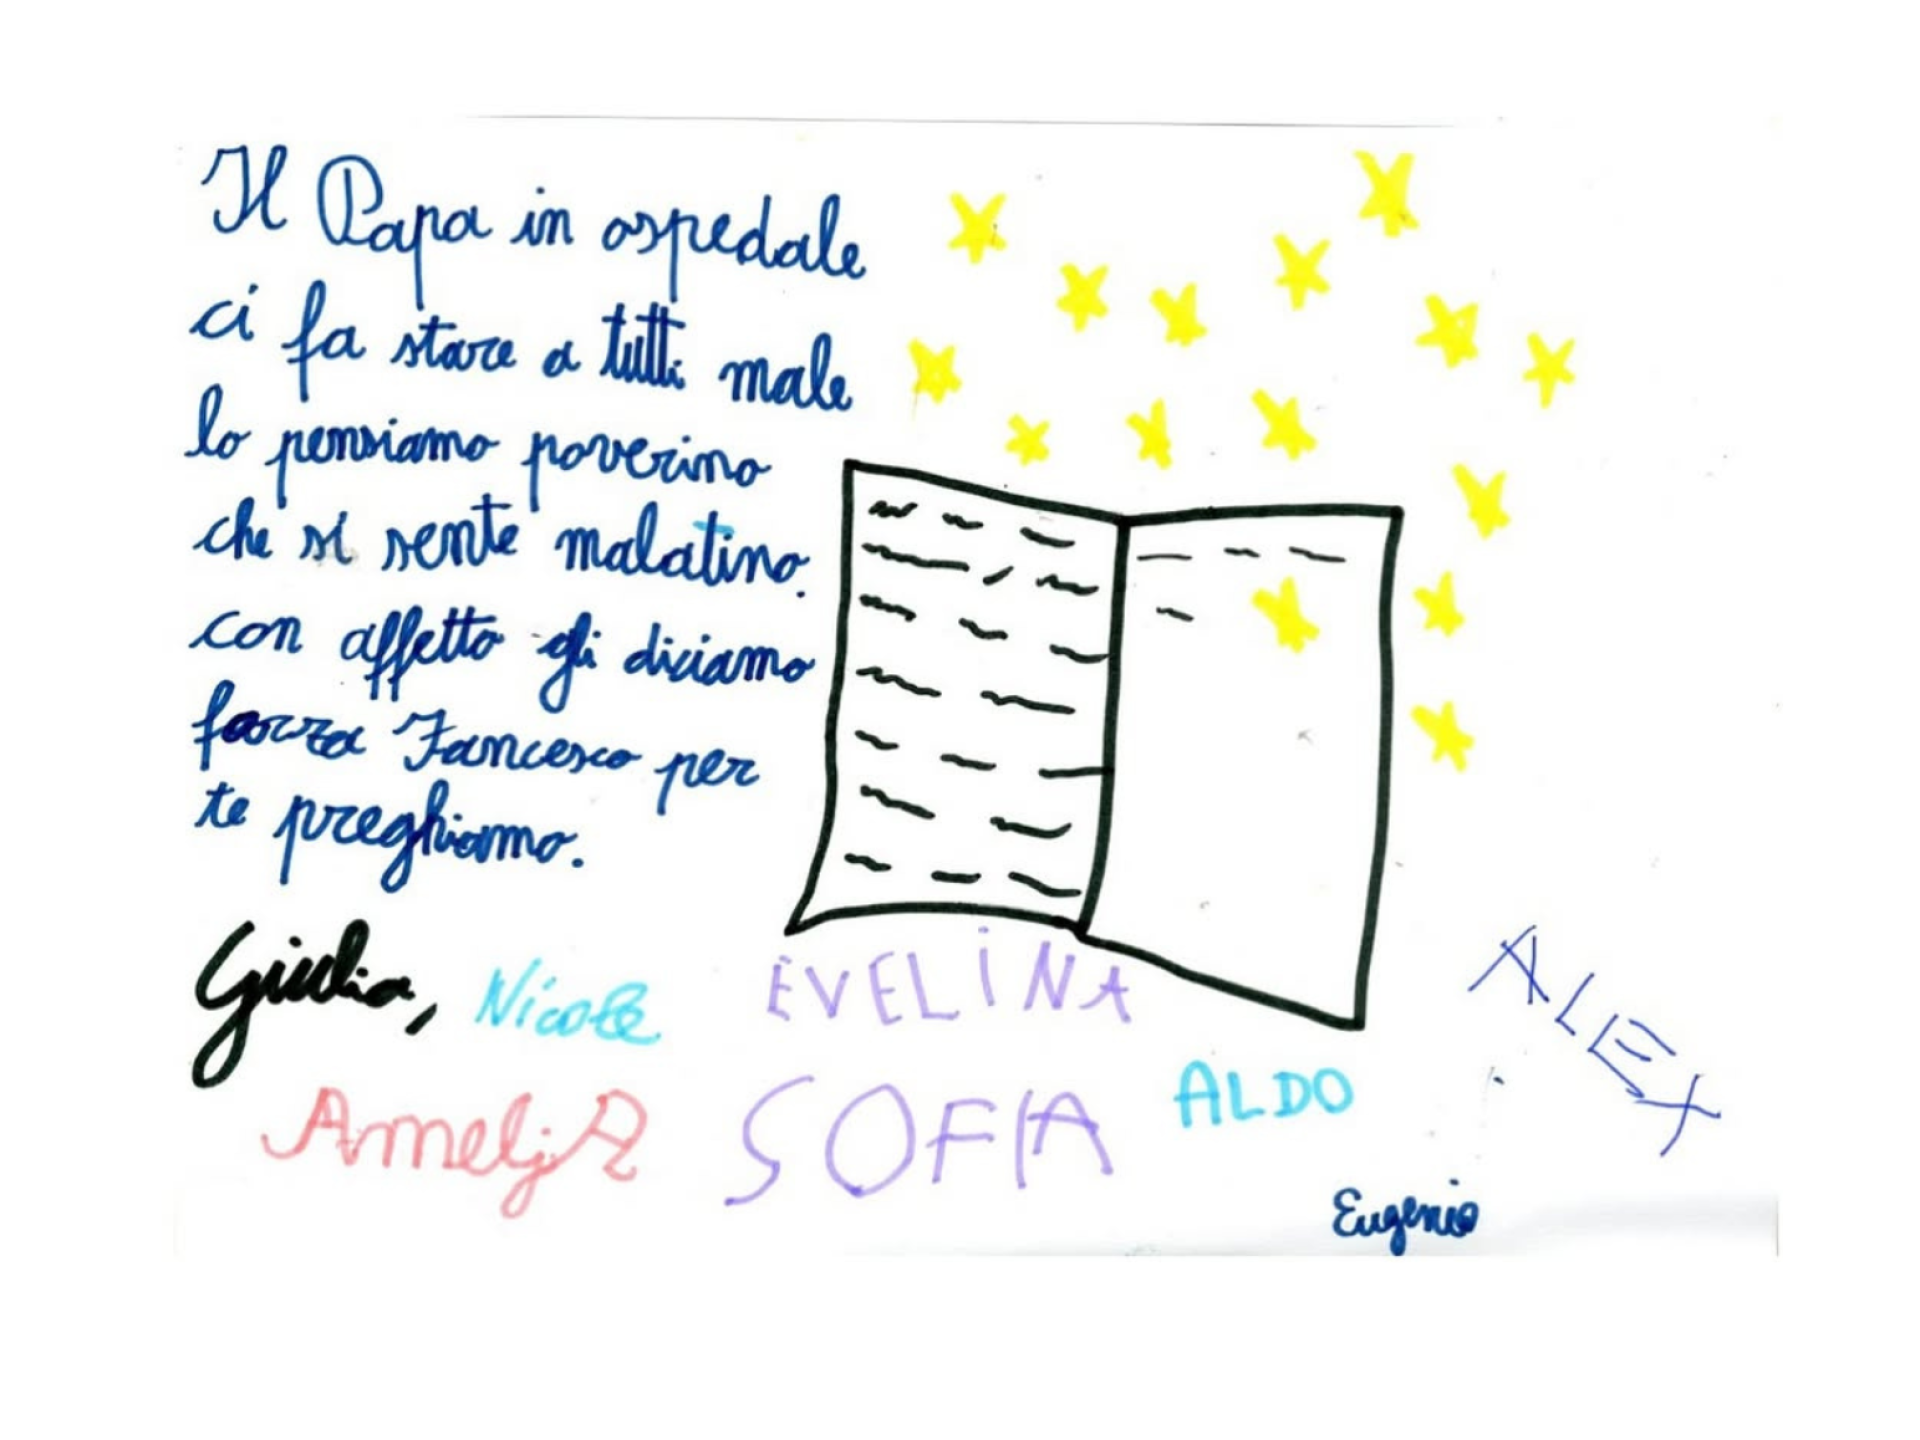 Il Papa in ospedale
ci fa stare a tutti male
lo pensiamo poverino
che si sente malatino.
con affetto gli diciamo
forza Fancesco per
te preghiamo.
Giulia, Nicole EVELINA ALEX
AmeljA SOFIA ALDO
Eugenio